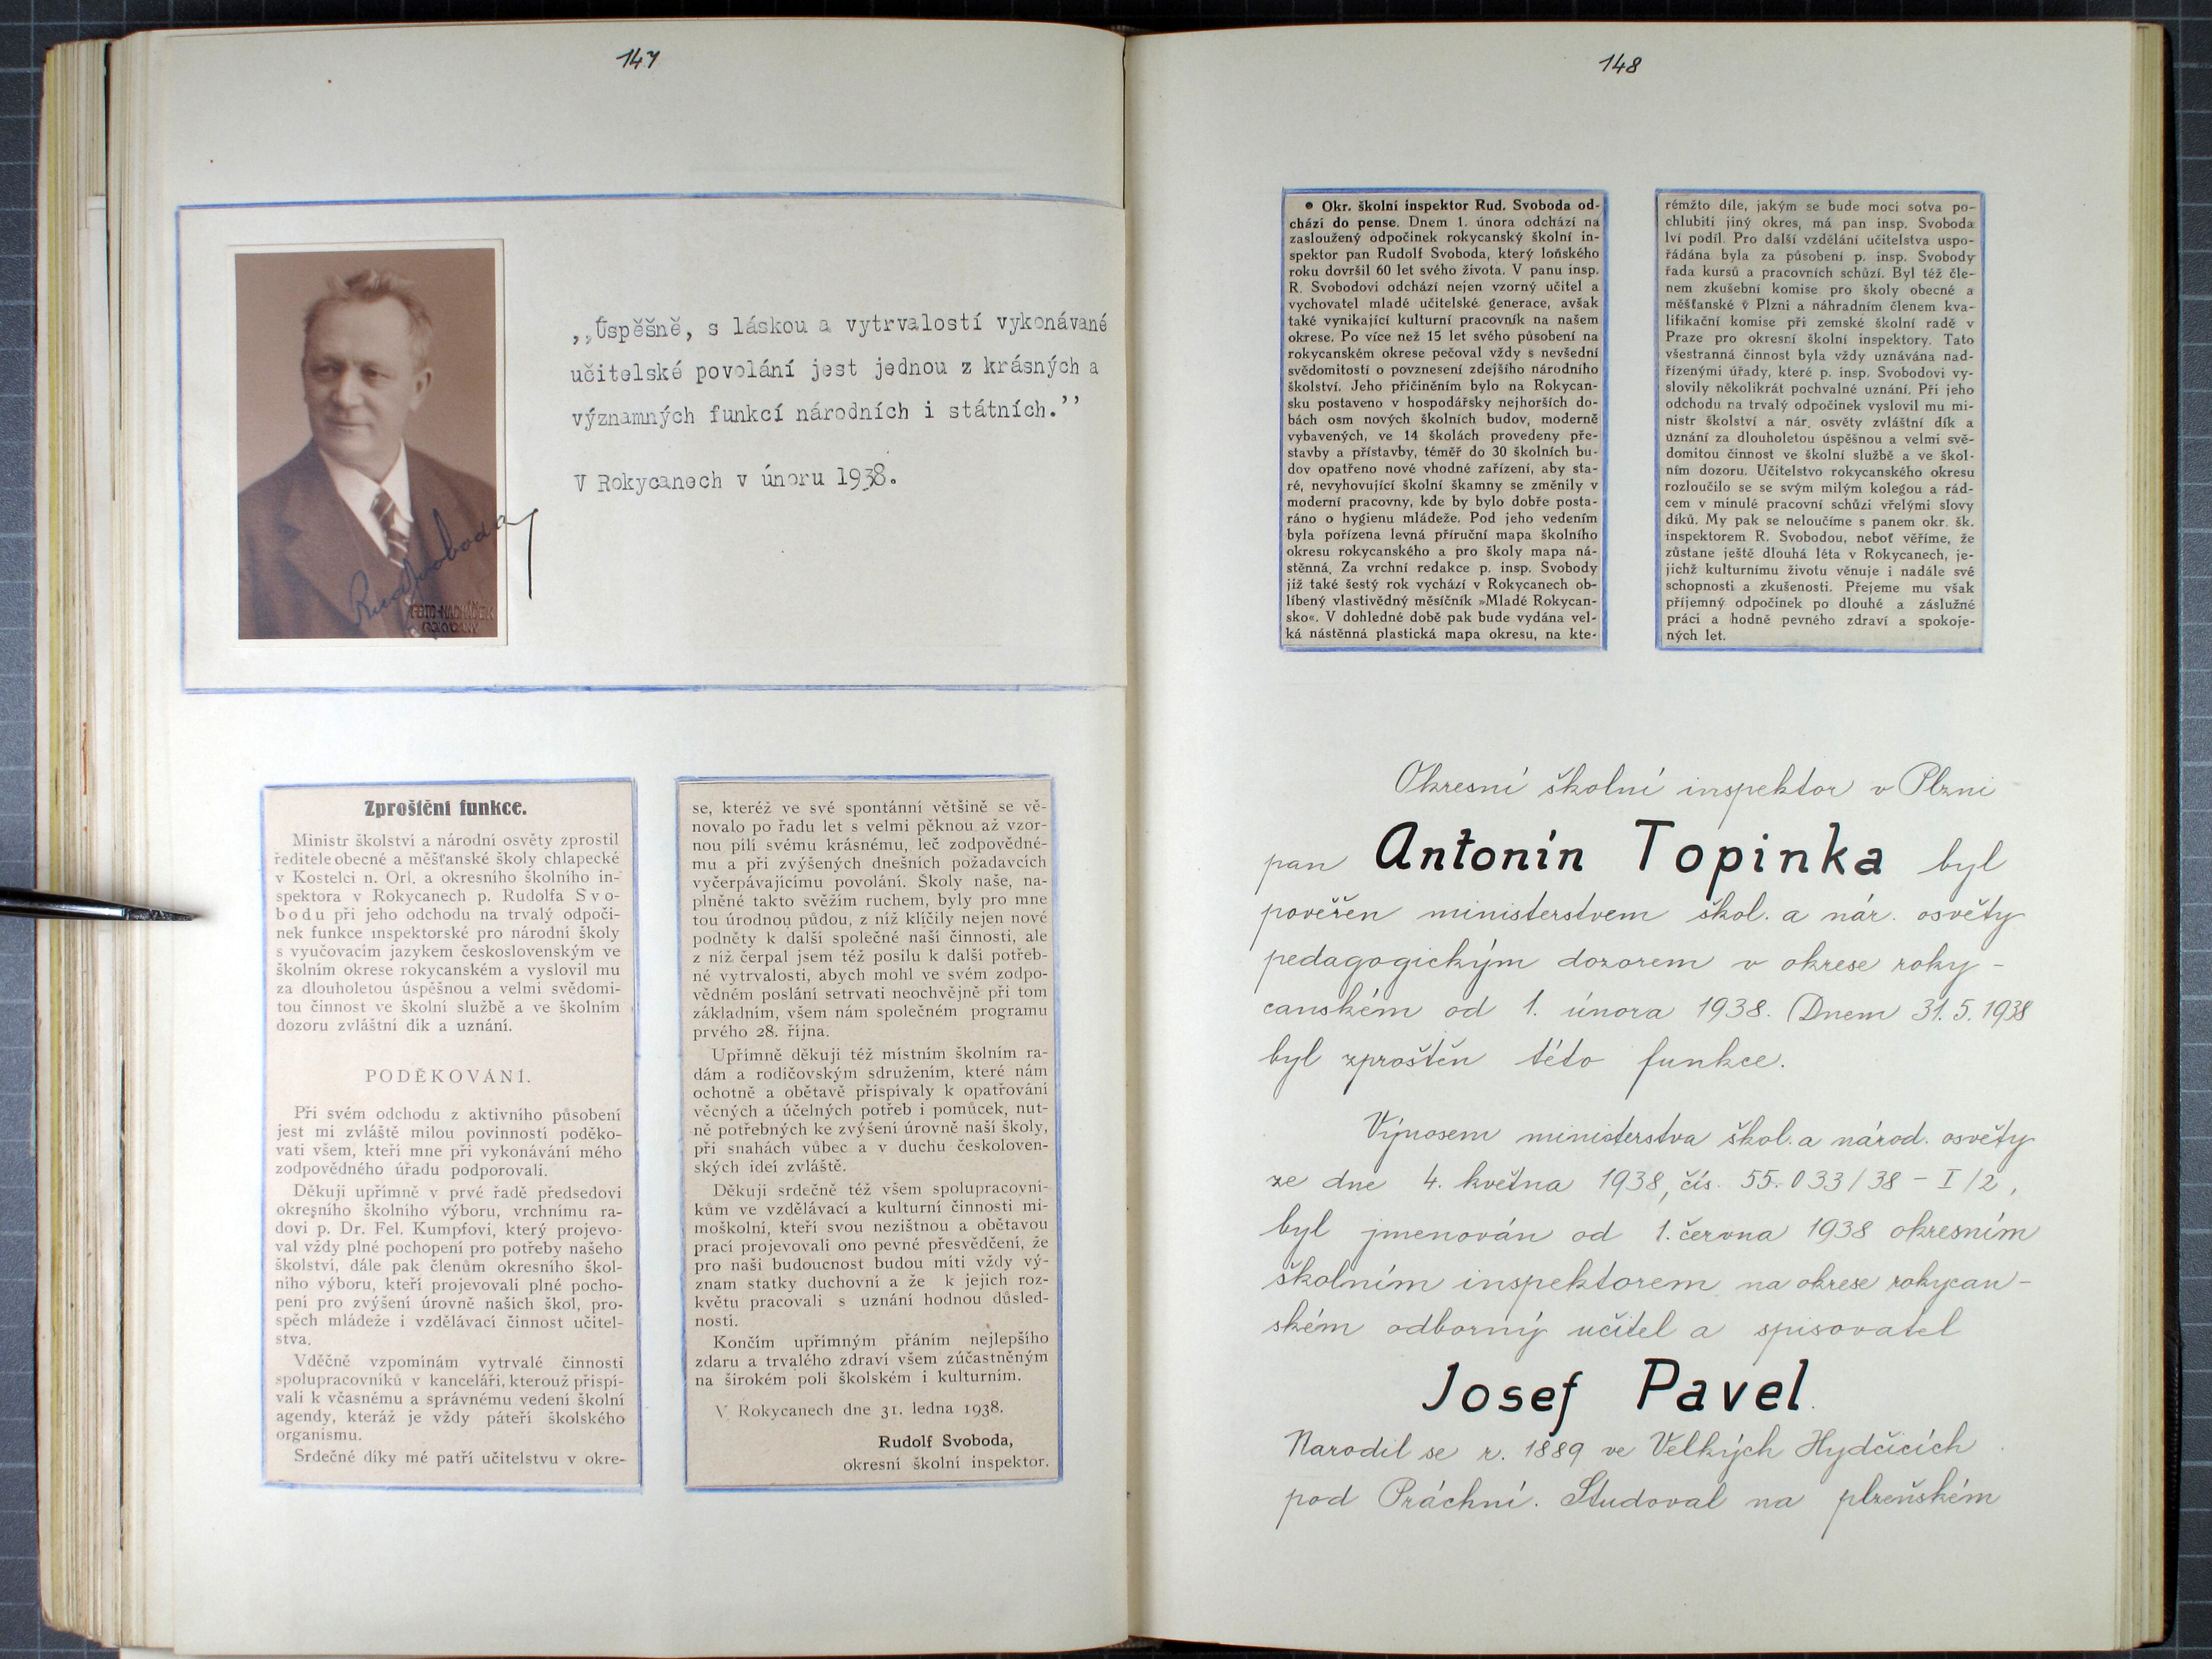 147
„Úspěšně, s láskou a vytrvalostí vykonávané
učitelské povolání jest jednou z krásných a
významných funkcí národních i státních.”
V Rokycanech v únoru 1938.
Rud Svoboda
FOTO-MACHÁČEK
ROKYCANY
Zproštění funkce.
Ministr školství a národní osvěty zprostil
ředitele obecné a měšťanské školy chlapecké
v Kostelci n. Orl. a okresního školního in-
spektora v Rokycanech p. Rudolfa Svo-
bodu při jeho odchodu na trvalý odpoči-
nek funkce inspektorské pro národní školy
s vyučovacím jazykem československým ve
školním okrese rokycanském a vyslovil mu
za dlouholetou úspěšnou a velmi svědomi-
tou činnost ve školní službě a ve školním
dozoru zvláštní dík a uznání.
PODĚKOVÁNÍ.
Při svém odchodu z aktivního působení
jest mi zvláště milou povinností poděko-
vati všem, kteří mne při vykonávání mého
zodpovědného úřadu podporovali.
Děkuji upřímně v prvé řadě předsedovi
okresního školního výboru, vrchnímu ra-
dovi p. Dr. Fel. Kumpfovi, který projevo-
val vždy plné pochopení pro potřeby našeho
školství, dále pak členům okresního škol-
ního výboru, kteří projevovali plné pocho-
pení pro zvýšení úrovně našich škol, pro-
spěch mládeže i vzdělávací činnost učitel-
stva.
Vděčně vzpomínám vytrvalé činnosti
spolupracovníků v kanceláři, kterouž přispí-
vali k včasnému a správnému vedení školní
agendy, kteráž je vždy páteří školského
organismu.
Srdečné díky mé patří učitelstvu v okre-
se, kteréž ve své spontánní většině se vě-
novalo po řadu let s velmi pěknou až vzor-
nou pílí svému krásnému, leč zodpovědné-
mu a při zvýšených dnešních požadavcích
vyčerpávajícímu povolání. Školy naše, na-
plněné takto svěžím ruchem, byly pro mne
tou úrodnou půdou, z níž klíčily nejen nové
podněty k další společné naší činnosti, ale
z níž čerpal jsem též posilu k další potřeb-
né vytrvalosti, abych mohl ve svém zodpo-
vědném poslání setrvati neochvějně při tom
základním, všem nám společném programu
prvého 28. října.
Upřímně děkuji též místním školním ra-
dám a rodičovským sdružením, které nám
ochotně a obětavě přispívaly k opatřování
věcných a účelných potřeb i pomůcek, nut-
ně potřebných ke zvýšení úrovně naší školy,
při snahách vůbec a v duchu českoloven-
ských ideí zvláště.
Děkuji srdečně též všem spolupracovní-
kům ve vzdělávací a kulturní činnosti mi-
moškolní, kteří svou nezištnou a obětavou
prací projevovali ono pevné přesvědčení, že
pro naši budoucnost budou míti vždy vý-
znam statky duchovní a že k jejich roz-
květu pracovali s uznání hodnou důsled-
ností.
Končím upřímným přáním nejlepšího
zdaru a trvalého zdraví všem zúčastněným
na širokém poli školském i kulturním.
V Rokycanech dne 31. ledna 1938.
Rudolf Svoboda,
okresní školní inspektor.
148
• Okr. školní inspektor Rud. Svoboda od-
chází do pense. Dnem 1. února odchází na
zasloužený odpočinek rokycanský školní in-
spektor pan Rudolf Svoboda, který loňského
roku dovršil 60 let svého života. V panu insp.
R. Svobodovi odchází nejen vzorný učitel a
vychovatel mladé učitelské generace, avšak
také vynikající kulturní pracovník na našem
okrese. Po více než 15 let svého působení na
rokycanském okrese pečoval vždy s nevšední
svědomitostí o povznesení zdejšího národního
školství. Jeho přičiněním bylo na Rokycan-
sku postaveno v hospodářsky nejhorších do-
bách osm nových školních budov, moderně
vybavených, ve 14 školách provedeny pře-
stavby a přístavby, téměř do 30 školních bu-
dov opatřeno nové vhodné zařízení, aby sta-
ré, nevyhovující školní škamny se změnily v
moderní pracovny, kde by bylo dobře posta-
ráno o hygienu mládeže. Pod jeho vedením
byla pořízena levná příruční mapa školního
okresu rokycanského a pro školy mapa ná-
stěnná. Za vrchní redakce p. insp. Svobody
již také šestý rok vychází v Rokycanech ob-
líbený vlastivědný měsíčník »Mladé Rokycan-
sko«. V dohledné době pak bude vydána vel-
ká nástěnná plastická mapa okresu, na kte-
rémžto díle, jakým se bude moci sotva po-
chlubiti jiný okres, má pan insp. Svoboda
lví podíl. Pro další vzdělání učitelstva uspo-
řádána byla za působení p. insp. Svobody
řada kursů a pracovních schůzí. Byl též čle-
nem zkušební komise pro školy obecné a
měšťanské v Plzni a náhradním členem kva-
lifikační komise při zemské školní radě v
Praze pro okresní školní inspektory. Tato
všestranná činnost byla vždy uznávána nad-
řízenými úřady, které p. insp. Svobodovi vy-
slovily několikrát pochvalné uznání. Při jeho
odchodu na trvalý odpočinek vyslovil mu mi-
nistr školství a nár. osvěty zvláštní dík a
uznání za dlouholetou úspěšnou a velmi svě-
domitou činnost ve školní službě a ve škol-
ním dozoru. Učitelstvo rokycanského okresu
rozloučilo se se svým milým kolegou a rád-
cem v minulé pracovní schůzi vřelými slovy
díků. My pak se neloučíme s panem okr. šk.
inspektorem R. Svobodou, neboť věříme, že
zůstane ještě dlouhá léta v Rokycanech, je-
jichž kulturnímu životu věnuje i nadále své
schopnosti a zkušenosti. Přejeme mu však
příjemný odpočinek po dlouhé a záslužné
práci a hodně pevného zdraví a spokoje-
ných let.
Okresní školní inspektor v Plzni
pan Antonín Topinka byl
pověřen ministerstvem škol. a nár. osvěty
pedagogickým dozorem v okrese roky-
canském od 1. února 1938. (Dnem 31.5.1938
byl zproštěn této funkce.
Výnosem ministerstva škol. a národ. osvěty
ze dne 4. května 1938, čís. 55.033/38 - I/2,
byl jmenován od 1. června 1938 okresním
školním inspektorem na okrese rokycan-
ském odborný učitel a spisovatel
Josef Pavel.
Narodil se r. 1889 ve Velkých Hydčicích
pod Práchní. Studoval na plzeňském